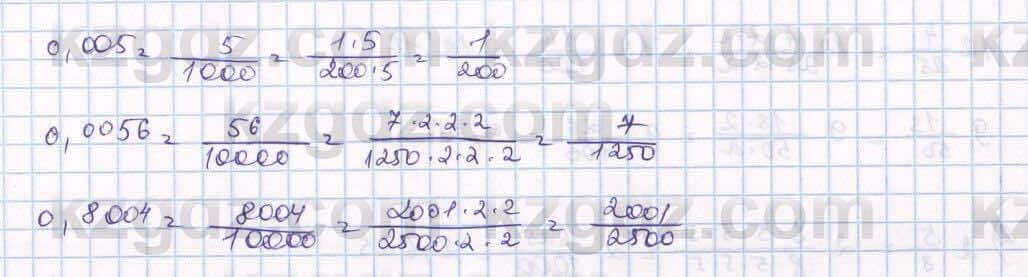 0,005 = 5/1000 = 1·5/200·5 = 1/200
0,0056 = 56/10000 = 7·2·2·2/1250·2·2·2 = 7/1250
0,8004 = 8004/10000 = 2001·2·2/2500·2·2 = 2001/2500
kzgdz.com kzgdz.com
kzgdz.com
kzgdz.com kzgdz.com